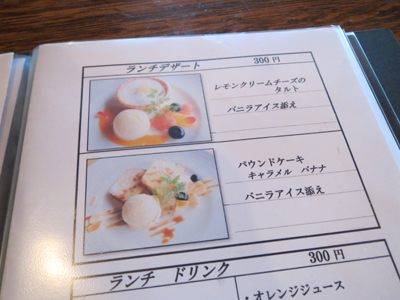 ランチデザート 300円
レモンクリームチーズの
タルト
バニラアイス添え
パウンドケーキ
キャラメル バナナ
バニラアイス添え
ランチ ドリンク 300円
・オレンジジュース